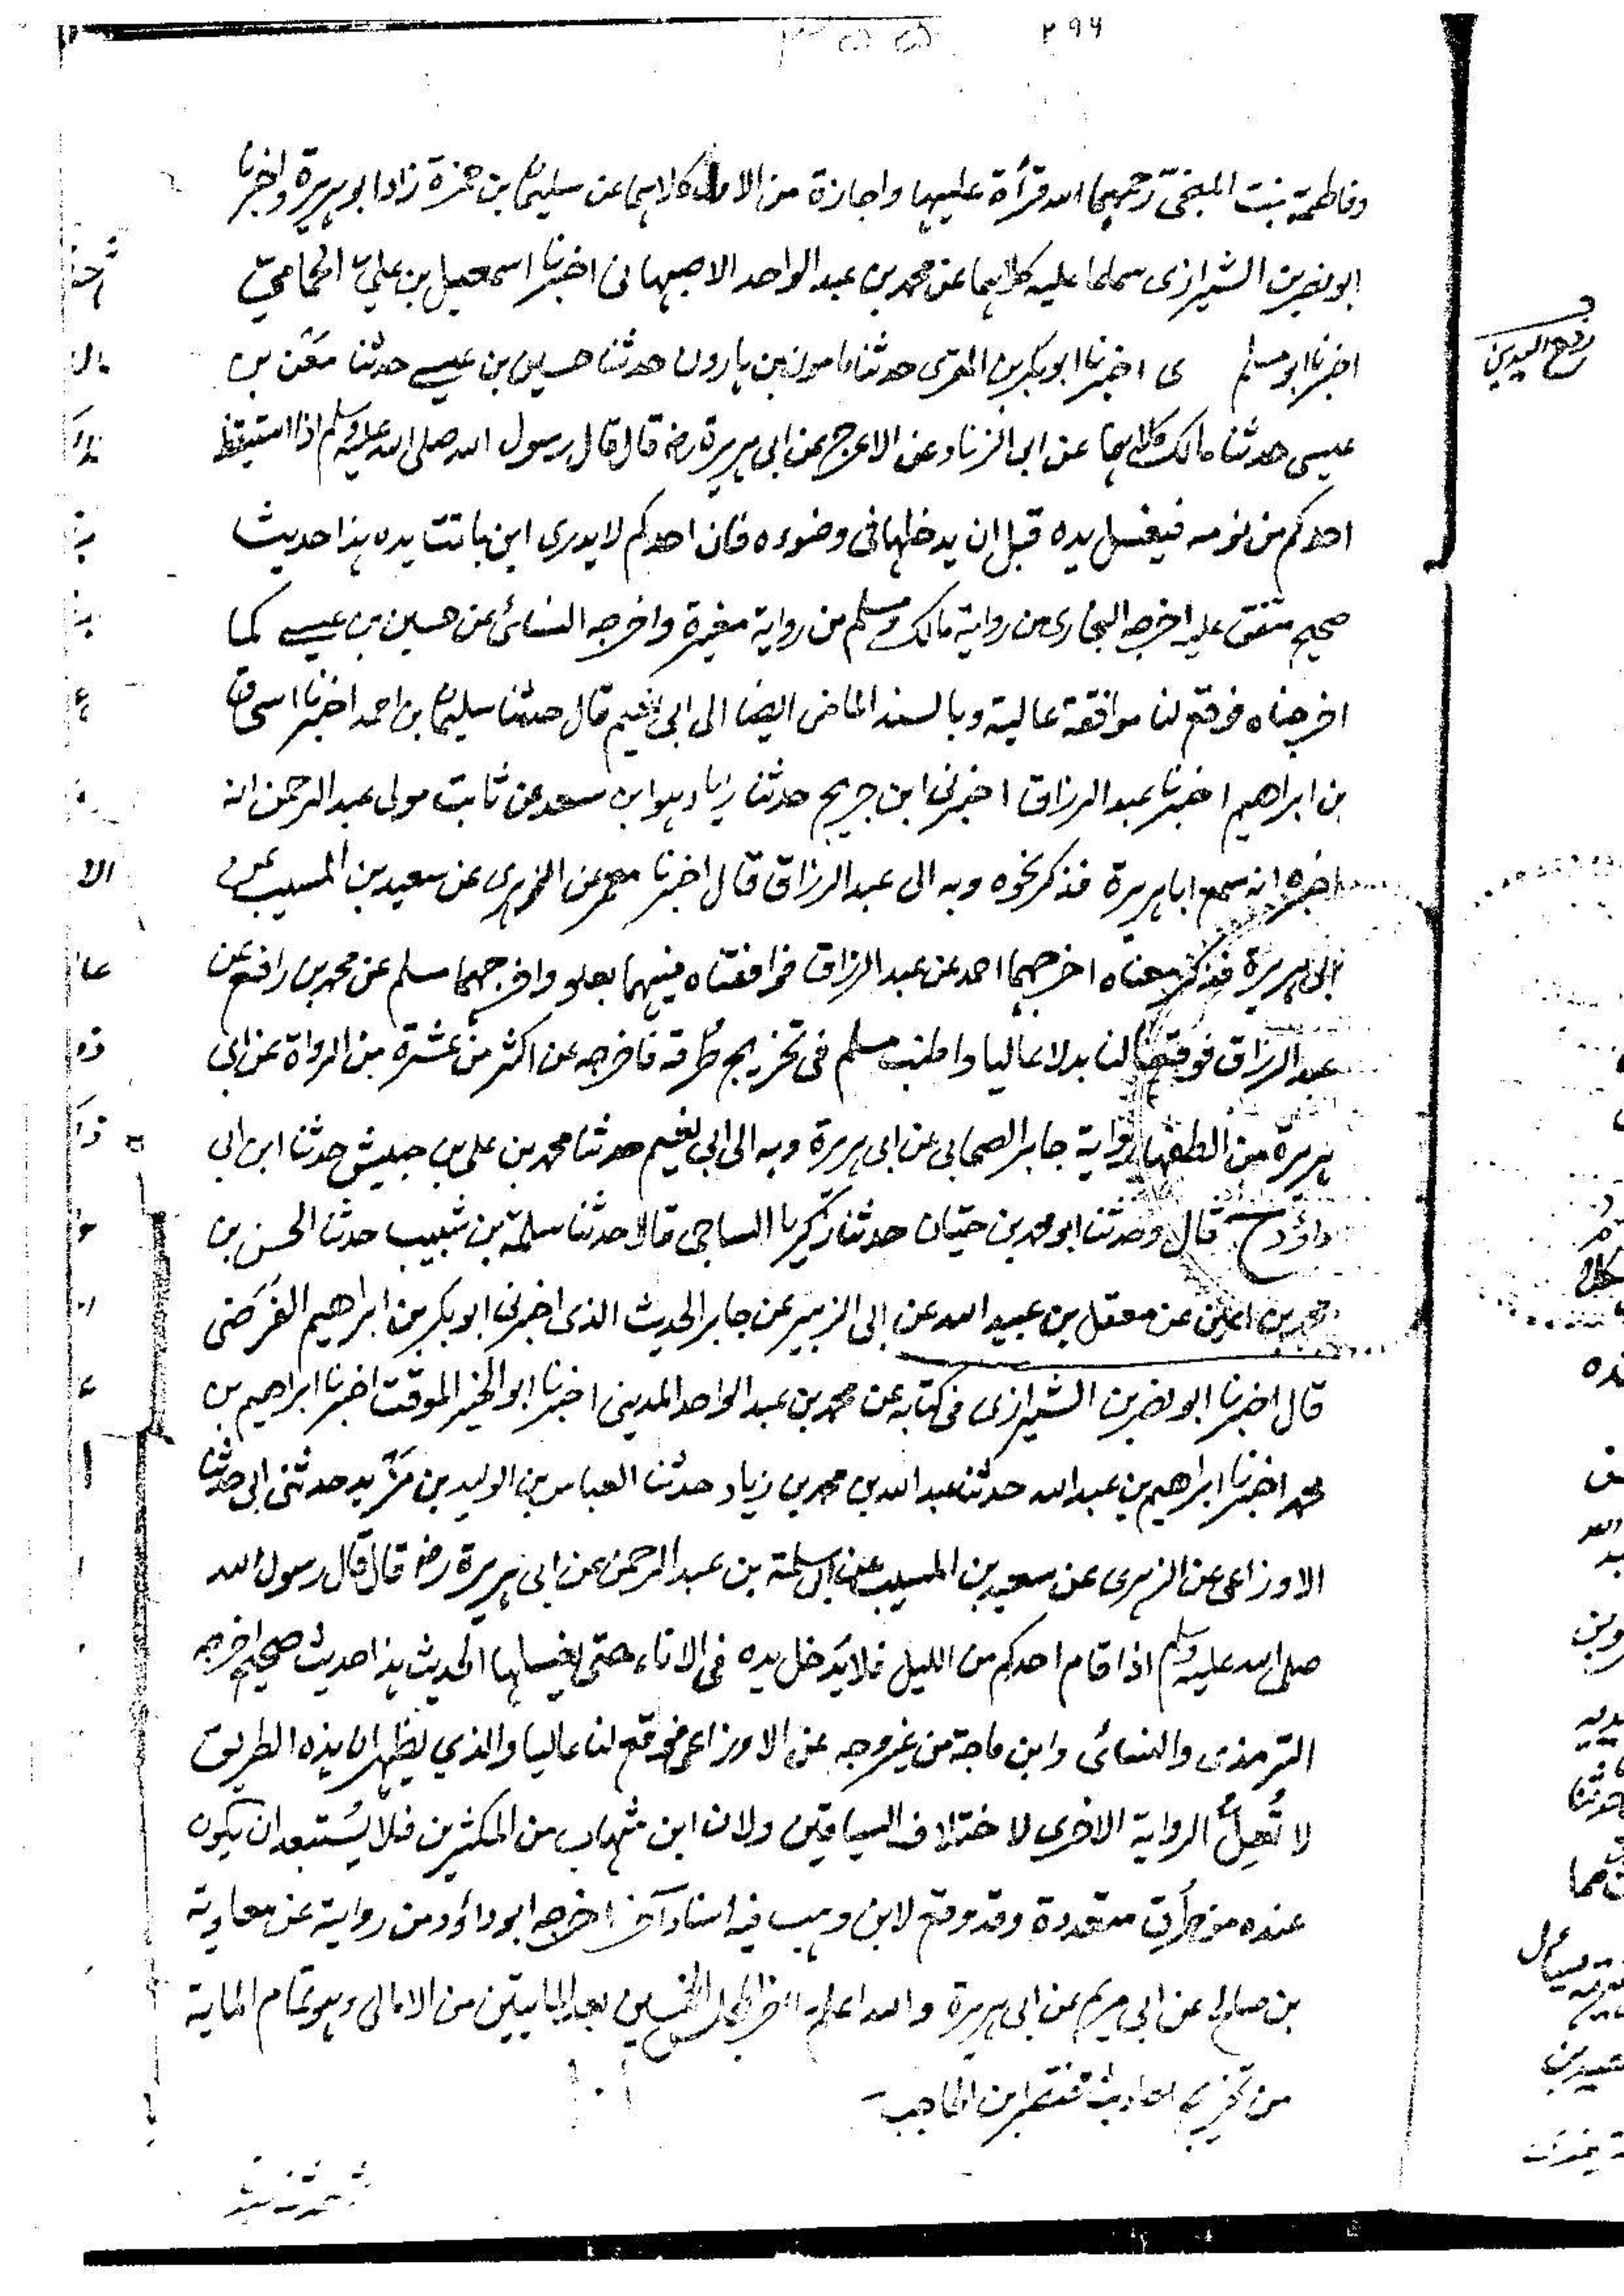 ٢٩٩
وفاطمة بنت المنجى رحمهما الله قرأة عليها واجازة من الاول كلاهما عن سليمان بن حمزة زاد ابو هريرة واخبرنا
ابو نصر بن الشيرازى سماعا عليه كلاهما عن محمد بن عبد الواحد الاصبهانى اخبرنا اسمعيل بن على الحمامى
اخبرنا ابو مسلم ى اخبرنا ابو بكر بن المقرى حدثنا مامون بن هارون حدثنا حسين بن عيسے حدثنا معن بن
عيسى حدثنا مالك كلاهما عن ابى الزناد عن الاعرج عن ابى هريرة رض قال قال رسول الله صلى الله عليه وسلم اذا استيقظ
احدكم من نومه فيغسل يده قبل ان يدخلها فى وضوءه فان احدكم لا يدرى اين باتت يده هذا حديث
صحيح متفق عليه اخرجه البخارى من رواية مالك ومسلم من رواية مغيرة واخرجه النسائى عن حسين بن عيسے كما
اخرجناه فوقع لنا موافقة عالية وبالسند الماضى ايضا الى ابى نعيم قال حدثنا سليمان بن احمد اخبرنا اسحاق
بن ابراهيم اخبرنا عبد الرزاق اخبرنى ابن جريج حدثنا زياد هو ابن سعد عن ثابت مولى عبد الرحمن انه
اخبره انه سمع ابا هريرة فذكر نحوه وبه الى عبد الرزاق قال اخبرنا معمر عن الزهرى عن سعيد بن المسيب عن
ابى هريرة فذكر معناه اخرجهما احمد عن عبد الرزاق فوافقناه فيهما بعلو واخرجهما مسلم عن محمد بن رافع عن
عبد الرزاق فوقعتا لنا بدلا عاليا واطنب مسلم فى تخريج طرقه فاخرجه عن اكثر من عشرة من الرواة عن ابى
هريرة من الطفها رواية جابر الصحابى عن ابى هريرة وبه الى ابى نعيم حدثنا محمد بن على بن حبيش حدثنا ابن ابى
داؤد ح قال وحدثنا ابو محمد بن حيّان حدثنا زكريا الساجى قالا حدثنا سلمة بن شبيب حدثنا الحسن بن
محمد بن اعين عن معقل بن عبيد الله عن ابى الزبير عن جابر الحديث الذى اخبرنى ابو بكر بن ابراهيم الفرضى
قال اخبرنا ابو نصر بن الشيرازى فى كتابه عن محمد بن عبد الواحد المدينى اخبرنا ابو الخير الموقت اخبرنا ابراهيم بن
محمد اخبرنا ابراهيم بن عبد الله حدثنا عبد الله بن محمد بن زياد حدثنا العباس بن الوليد بن مَزْيد حدثنى ابى حدثنا
الاوزاعى عن الزهرى عن سعيد بن المسيب عن ابى سلمة بن عبد الرحمن عن ابى هريرة رض قال قال رسول الله
صلى الله عليه وسلم اذا قام احدكم من الليل فلا يُدخل يده فى الاناء حتى يغسلها الحديث هذا حديث صحيح اخرجه
الترمذى والنسائى وابن ماجة من غير وجه عن الاوزاعى فوقع لنا عاليا والذي يظهر ان هذه الطريق
لا تُعِلّ الرواية الاخرى لاختلاف السياقين ولان ابن شهاب من المكثرين فلا يُستبعد ان يكون
عنده من طُرق متعددة وقد وقع لابن وهب فيه اسناد آخر اخرجه ابو داؤد من رواية عن معاوية
بن صالح عن ابى مريم عن ابى هريرة والله اعلم آخر المجلس الخمسين بعد المايتين من الامالى وهو تمام الماية
من تخريج احاديث مختصر ابن الحاجب
رفع اليدين